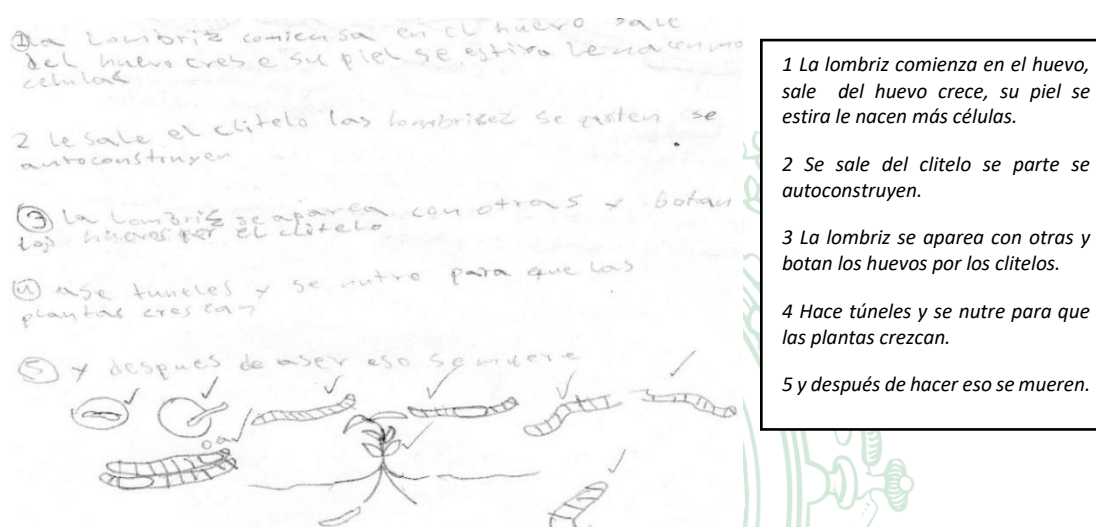 ① La Lombriz comiensa en el huevo sale
del huevo crese su piel se estira le nacen mas
celulas
2 le sale el clitelo las lombrisez se parten se
autoconstruyen
③ La Lombriz se aparea con otras y botan
los huevos por el clitelo
④ ase tuneles y se nutre para que las
plantas crescan
⑤ y despues de aser eso se muere
1 La lombriz comienza en el huevo,
sale del huevo crece, su piel se
estira le nacen más células.
2 Se sale del clitelo se parte se
autoconstruyen.
3 La lombriz se aparea con otras y
botan los huevos por los clitelos.
4 Hace túneles y se nutre para que
las plantas crezcan.
5 y después de hacer eso se mueren.